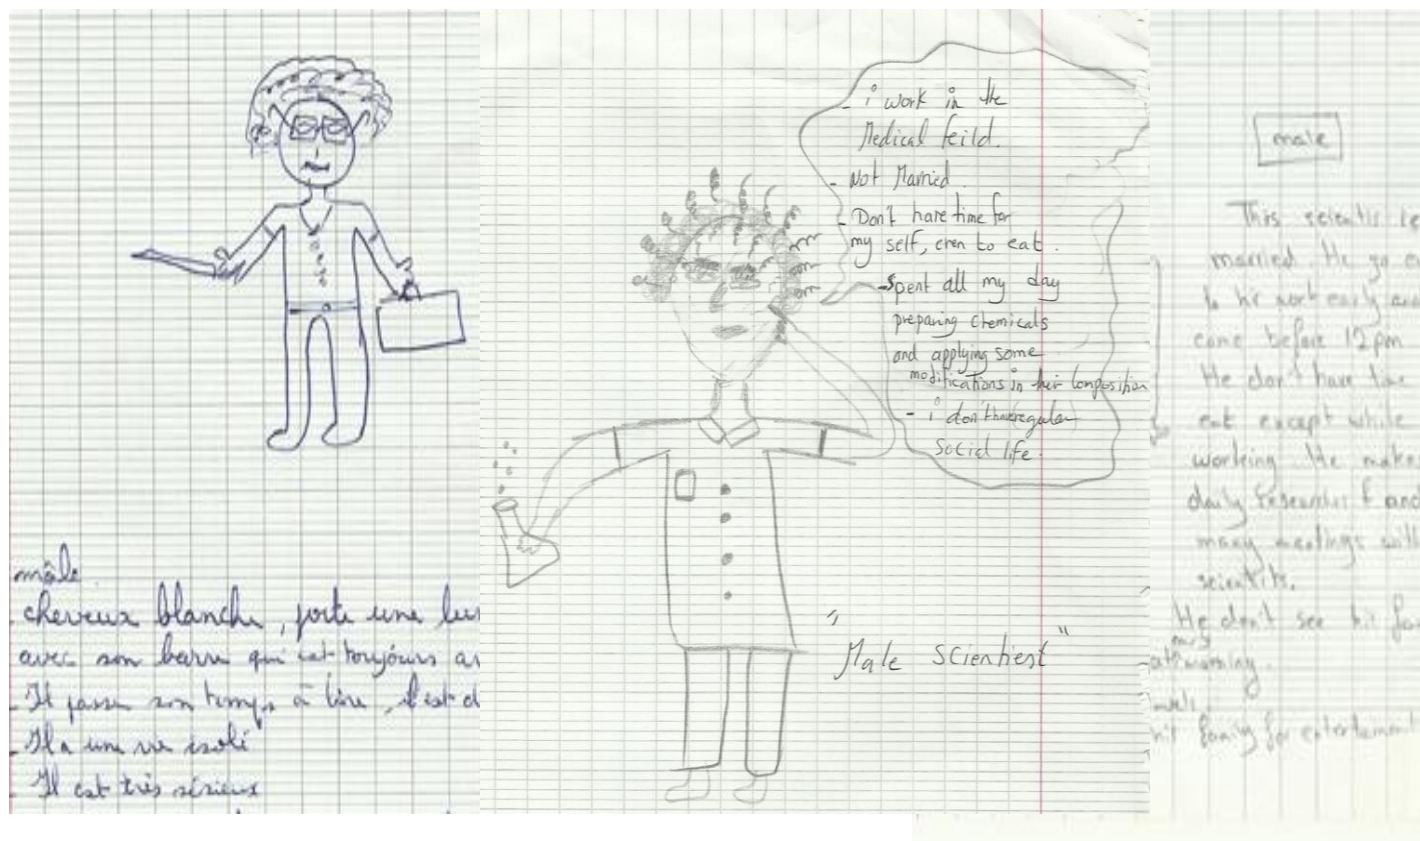 mâle
cheveux blanche, porte une
avec son barru qui est toujours
- Il passe son temps à lire, c'est
- Il a une vie isolé
- Il est très sérieux
- i work in the
Medical feild.
- Not Married.
- Don't have time for
my self, even to eat.
- Spent all my day
preparing chemicals
and applying some
modifications in their composition
- i don't have regular
social life.
"Male scientiest"
male
This scientis is
married. He go
to his work early and
come before 12 pm
He don't have time
eat except while
working. He makes
daily researchs and
many meetings with
scientits.
He don't see his
early
at morning.
his family for entertainment